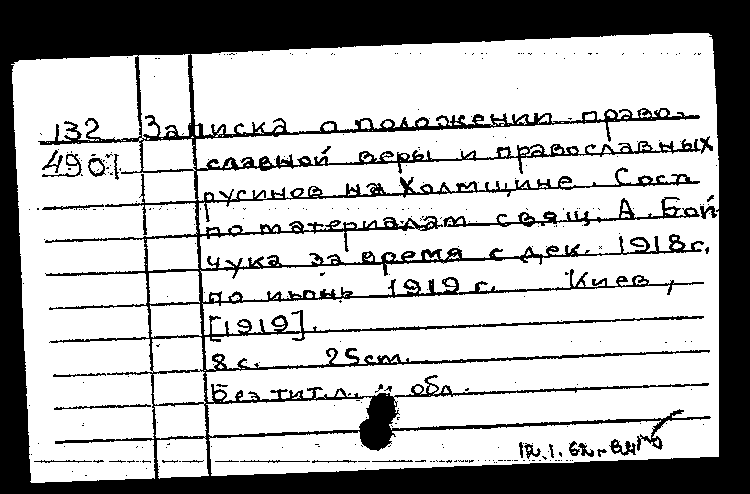 132 Записка о положении право-
4901 славной веры и православных
русинов на Холмщине. Сост
по материалам свящ. А. Бой-
чука за время с дек. 1918 г.
по июнь 1919 г. Киев,
[1919].
8 с. 25 cm.
Без тит. л. и обл.
12.1.62